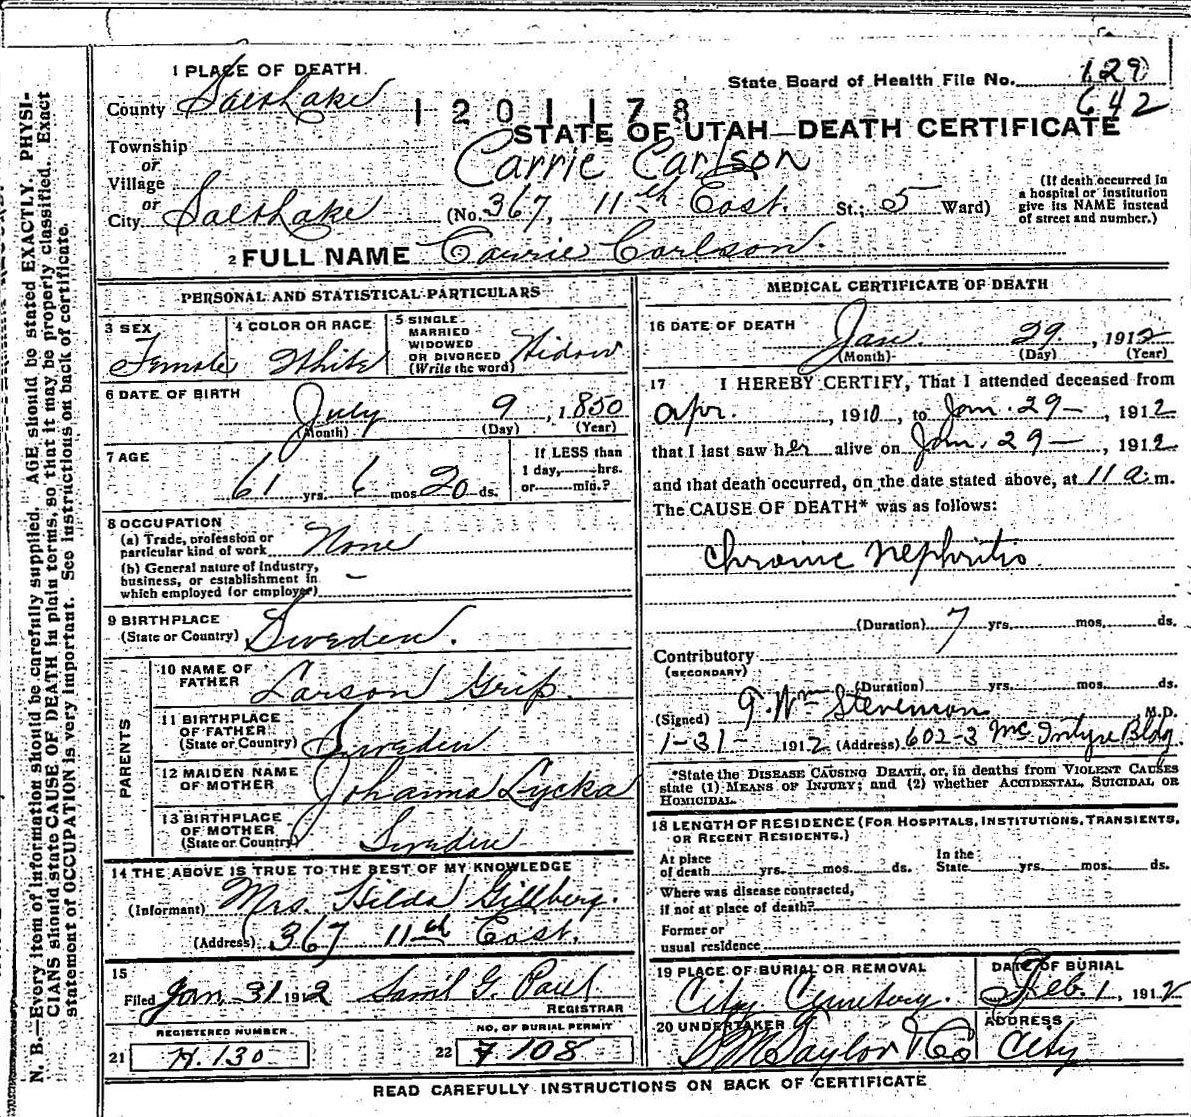 1 PLACE OF DEATH
State Board of Health File No. 129
642
County Salt Lake
1201178
STATE OF UTAH—DEATH CERTIFICATE
Township
or
Village
or
City Salt Lake
Carrie Carlson
(No. 367, 11th East. St.; 5 Ward)
(If death occurred in
a hospital or institution
give its NAME instead
of street and number.)
2 FULL NAME Carrie Carlson.
PERSONAL AND STATISTICAL PARTICULARS
3 SEX
Female
4 COLOR OR RACE
White
5 SINGLE
MARRIED
WIDOWED
OR DIVORCED
(Write the word)
Widow
6 DATE OF BIRTH
July 9, 1850
(Month) (Day) (Year)
7 AGE
61 yrs. 6 mos 20 ds.
If LESS than
1 day, hrs.
or min.?
8 OCCUPATION
(a) Trade, profession or
particular kind of work None
(b) General nature of industry,
business, or establishment in
which employed (or employer) —
9 BIRTHPLACE
(State or Country) Sweden.
PARENTS
10 NAME OF
FATHER Larson Grip.
11 BIRTHPLACE
OF FATHER
(State or Country) Sweden
12 MAIDEN NAME
OF MOTHER Johanna Lycka
13 BIRTHPLACE
OF MOTHER
(State or Country) Sweden
14 THE ABOVE IS TRUE TO THE BEST OF MY KNOWLEDGE
(Informant) Mrs. Hilda Gillberg.
(Address) 367 11th East.
15
Filed Jan 31 1912 Saml G. Paul
REGISTRAR
REGISTERED NUMBER.
21 H.130
NO. OF BURIAL PERMIT
22 7108
MEDICAL CERTIFICATE OF DEATH
16 DATE OF DEATH
Jan. 29, 1912
(Month) (Day) (Year)
17 I HEREBY CERTIFY, That I attended deceased from
Apr. , 1910, to Jan. 29—, 1912
that I last saw her alive on Jan. 29—, 1912
and that death occurred, on the date stated above, at 11 a.m.
The CAUSE OF DEATH* was as follows:
Chronic Nephritis.
(Duration) 7 yrs. mos. ds.
Contributory
(SECONDARY)
(Duration) yrs. mos. ds.
(Signed) Wm Stevenson M.D.
1-31- 1912 (Address) 602-3 McIntyre Bldg.
*State the DISEASE CAUSING DEATH, or, in deaths from VIOLENT CAUSES
state (1) MEANS OF INJURY; and (2) whether ACCIDENTAL, SUICIDAL OR
HOMICIDAL.
18 LENGTH OF RESIDENCE (FOR HOSPITALS, INSTITUTIONS, TRANSIENTS,
OR RECENT RESIDENTS.)
At place
of death yrs. mos. ds.
In the
State yrs. mos. ds.
Where was disease contracted,
if not at place of death?
Former or
usual residence
19 PLACE OF BURIAL OR REMOVAL
City Cemetery.
DATE OF BURIAL
Feb. 1, 1912
20 UNDERTAKER
S M Taylor & Co
ADDRESS
City
READ CAREFULLY INSTRUCTIONS ON BACK OF CERTIFICATE
N. B.—Every item of information should be carefully supplied. AGE should be stated EXACTLY. PHYSI-
CIANS should state CAUSE OF DEATH in plain terms, so that it may be properly classified. Exact
statement of OCCUPATION is very important. See instructions on back of certificate.